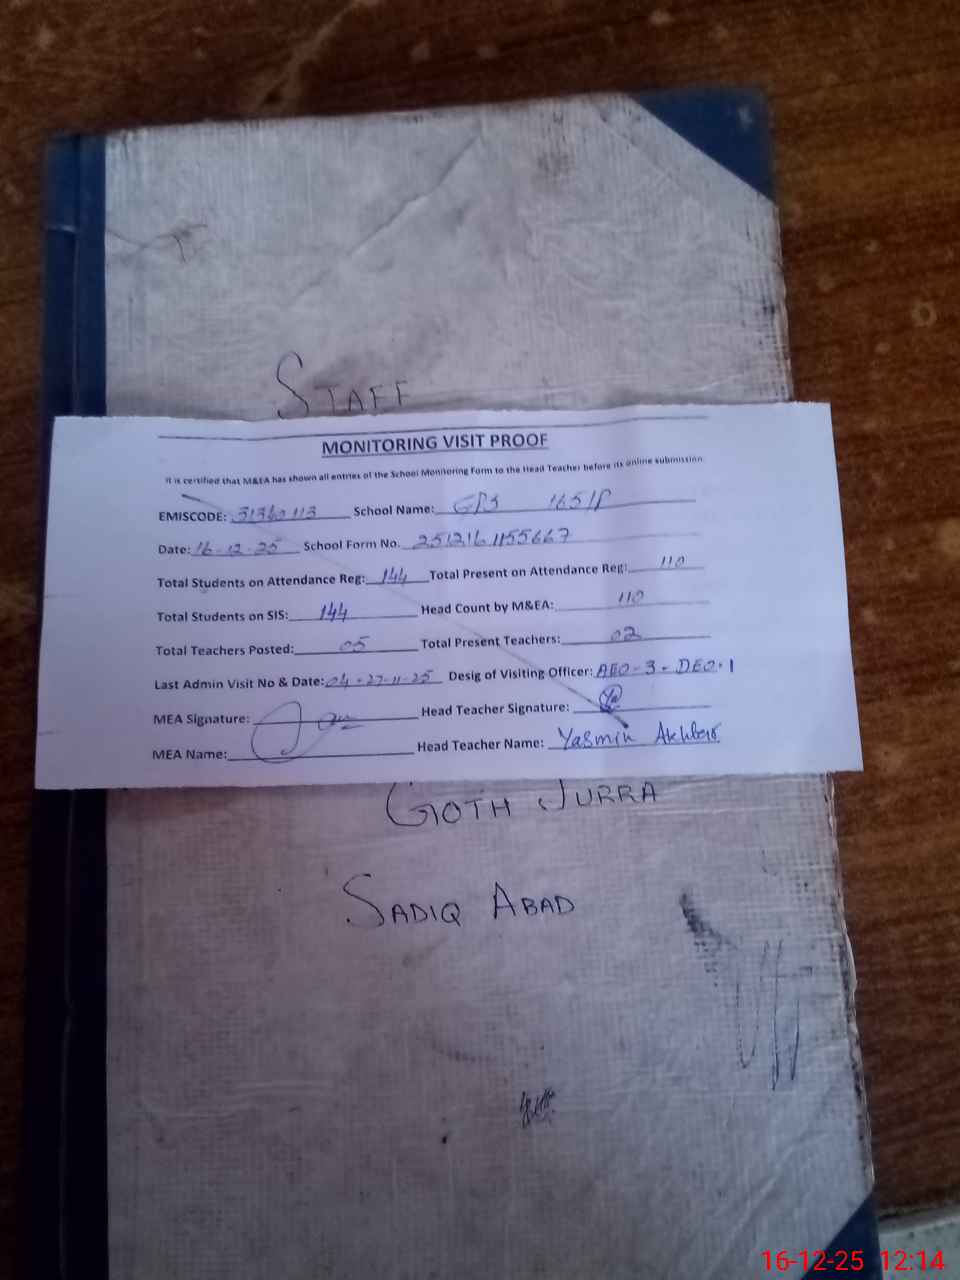 STAFF
MONITORING VISIT PROOF
It is certified that M&EA has shown all entries of the School Monitoring Form to the Head Teacher before its online submission.
EMISCODE: 31340113 School Name: GPS 165/P
Date: 16-12-25 School Form No. 251216 1155667
Total Students on Attendance Reg: 144 Total Present on Attendance Reg: 110
Total Students on SIS: 144 Head Count by M&EA: 110
Total Teachers Posted: 05 Total Present Teachers: 02
Last Admin Visit No & Date: 04-27-11-25 Desig of Visiting Officer: AEO-3-DEO-1
MEA Signature: Head Teacher Signature:
MEA Name: Head Teacher Name: Yasmin Akhtar
GOTH JURRA
SADIQ ABAD
16-12-25 12:14